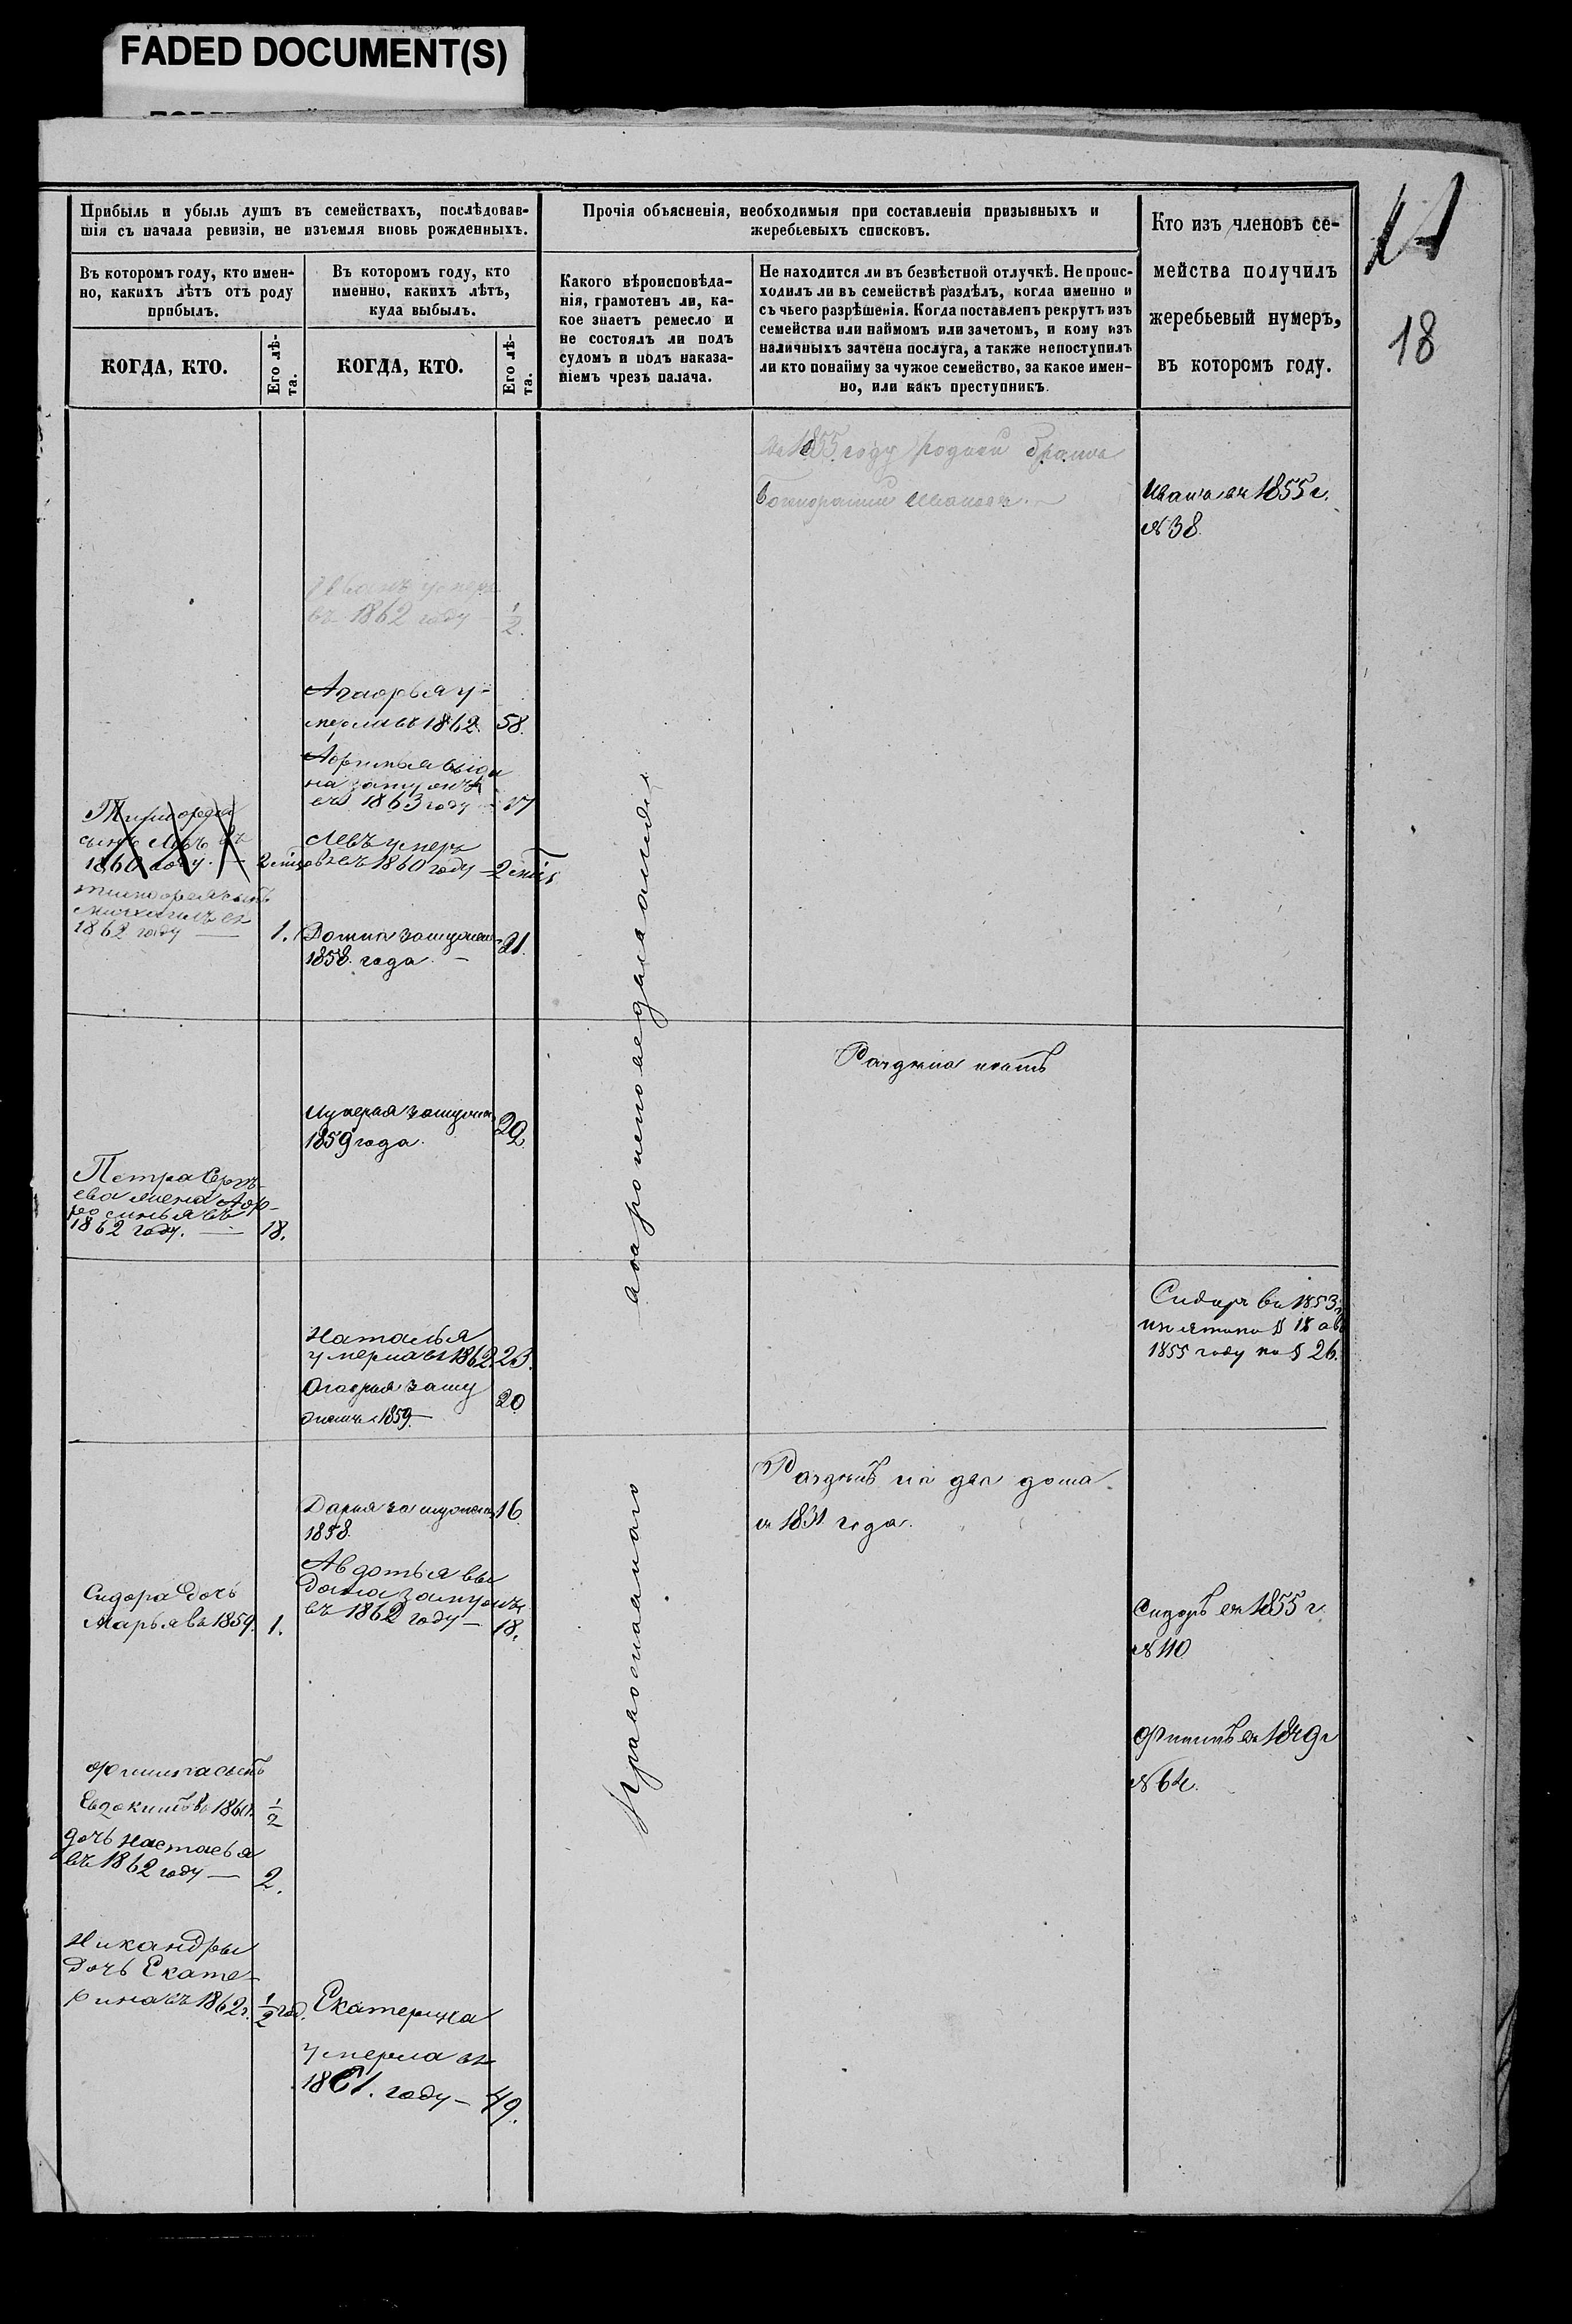 FADED DOCUMENT(S)
18
Прибыль и убыль душъ въ семействахъ, послѣдовав-
шія съ начала ревизіи, не изъемля вновь рожденныхъ.
Прочія объясненія, необходимыя при составленіи призывныхъ и
жеребьевыхъ списковъ.
Кто изъ членовъ се-
мейства получилъ
жеребьевый нумеръ,
въ которомъ году.
Въ которомъ году, кто имен-
но, какихъ лѣтъ отъ роду
прибылъ.
Въ которомъ году, кто
именно, какихъ лѣтъ,
куда выбылъ.
Какого вѣроисповѣда-
нія, грамотенъ ли, ка-
кое знаетъ ремесло и
не состоялъ ли подъ
судомъ и подъ наказа-
ніемъ чрезъ палача.
Не находится ли въ безвѣстной отлучкѣ. Не проис-
ходилъ ли въ семействѣ раздѣлъ, когда именно и
съ чьего разрѣшенія. Когда поставленъ рекрутъ изъ
семейства или наймомъ или зачетомъ, и кому изъ
наличныхъ зачтена послуга, а также непоступилъ
ли кто понайму за чужое семейство, за какое имен-
но, или какъ преступникъ.
КОГДА, КТО.
Его лѣ-
та.
КОГДА, КТО.
Его лѣ-
та.
въ 1855 году родной братъ
Иванъ въ 1855 г.
№ 38.
Иванъ умеръ
въ 1862 году — 1/2.
умерла въ 1862. 58.
на замужъ
въ 1863 году — 17
Тимофея
сынъ Левъ въ
1860 году — 2 мѣс
Левъ умеръ
въ 1860 году — 2 мѣс
Тимофея сынъ
Михаилъ въ
1862 году — 1.
Домна замужъ
1858 года — 21.
Раздѣла нѣтъ
замужъ
1859 года. 22
Петра
жена Аф-
росинья въ
1862 году. — 18.
Сидоръ въ 1853 г.
№ 18 а въ
1855 году по № 26.
Наталья
умерла въ 1862. 23.
заму
жемъ 1859. — 20
Раздѣлъ на два дома
въ 1831 года.
Дарья замужемъ 16.
1858.
Авдотья вы
дана замужъ
въ 1862 году — 18.
Сидора дочь
Марья въ 1859. 1.
Сидоръ въ 1855 г.
№ 110
Филипъ въ 1849 г
№ 64.
Филипа сынъ
Евдокимъ въ 1860 г. 1/2
дочь Настасья
въ 1862 году — 2.
Никандры
дочь Екате-
рина въ 1862 г. 1/2 год.
Екатерина
умерла въ
1861. году — 49.
Православнаго
вѣроисповѣданія